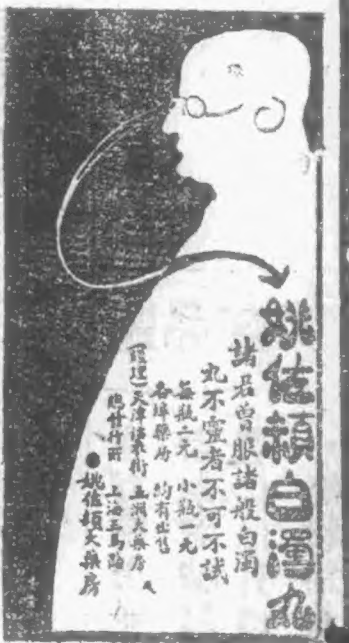 姚佐頓白濁丸
諸君曾服諸般白濁
丸不靈者不可不試
每瓶二元 小瓶一元
各埠藥房 均有出售
天津估衣街 五洲大藥房
總發行所 上海三馬路
●姚佐頓大藥房